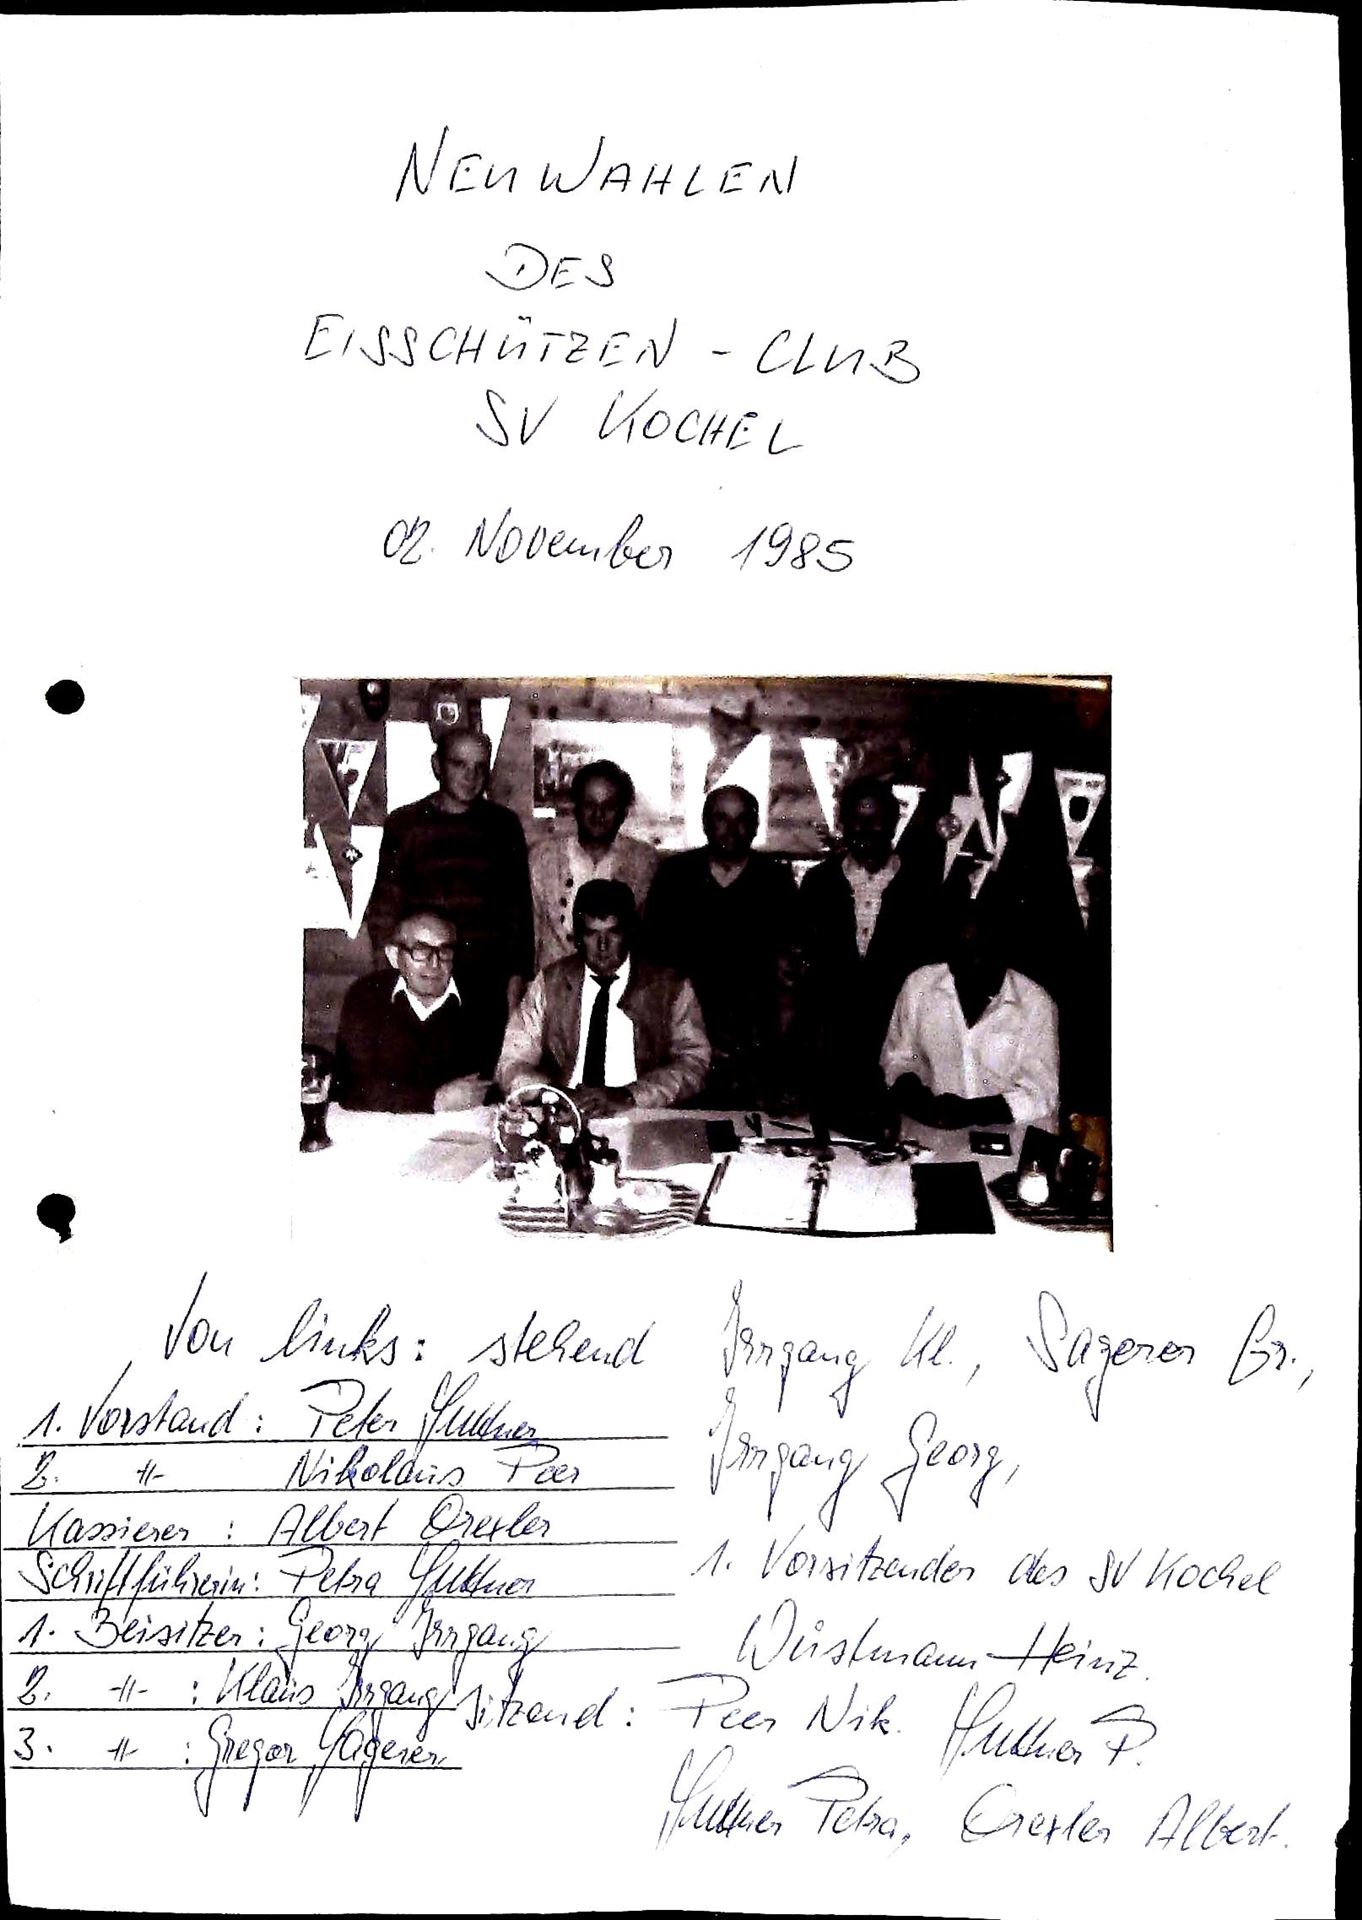 NEUWAHLEN
DES
EISSCHÜTZEN - CLUB
SV KOCHEL
02. November 1985
Von links: stehend Irrgang Kl., Sagerer Gr.,
Irrgang Georg,
1. Vorsitzender des SV Kochel
Wüstmann Heinz.
sitzend: Peer Nik. Huttner P.
Huttner Petra, Drexler Albert.
1. Vorstand: Peter Huttner
2. -"- Nikolaus Peer
Kassierer: Albert Drexler
Schriftführerin: Petra Huttner
1. Beisitzer: Georg Irrgang
2. -"- : Klaus Irrgang
3. -"- : Gregor Sagerer